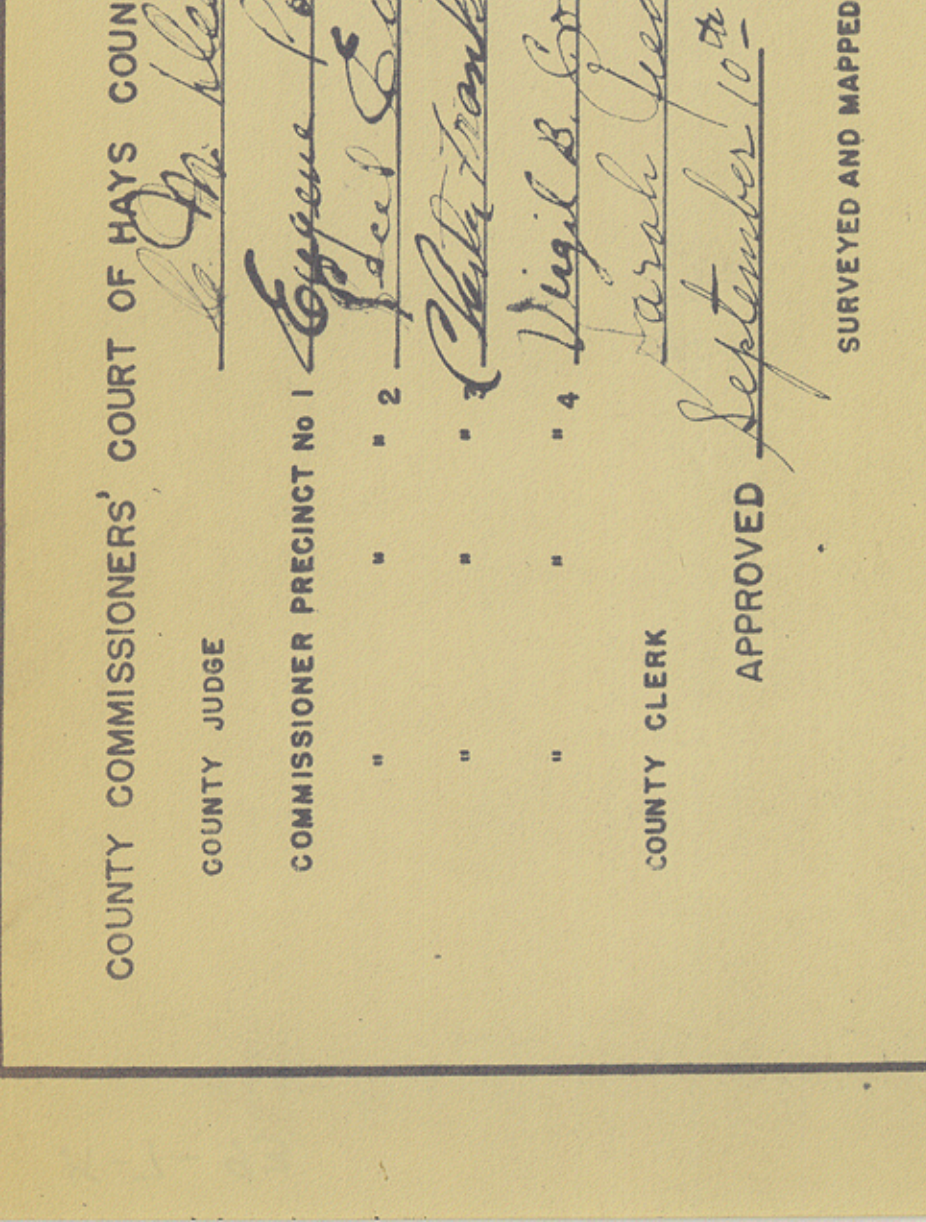 COUNTY COMMISSIONERS' COURT OF HAYS COUN
COUNTY JUDGE M.
COMMISSIONER PRECINCT No 1 Eugene
" " " 2
" " " 3
" " " 4 Virgil B.
COUNTY CLERK Sarah
APPROVED September 10th
SURVEYED AND MAPPED